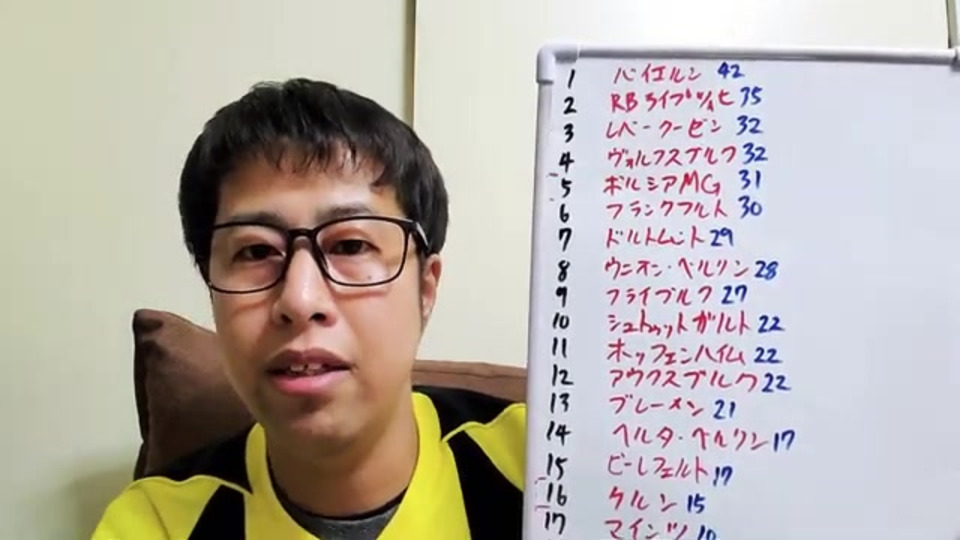 1 バイエルン 42
2 RBライプツィヒ 35
3 レバークーゼン 32
4 ヴォルフスブルク 32
5 ボルシアMG 31
6 フランクフルト 30
7 ドルトムント 29
8 ウニオン・ベルリン 28
9 フライブルク 27
10 シュトゥットガルト 22
11 ホッフェンハイム 22
12 アウクスブルク 22
13 ブレーメン 21
14 ヘルタ・ベルリン 17
15 ビーレフェルト 17
16 ケルン 15
17 マインツ 10